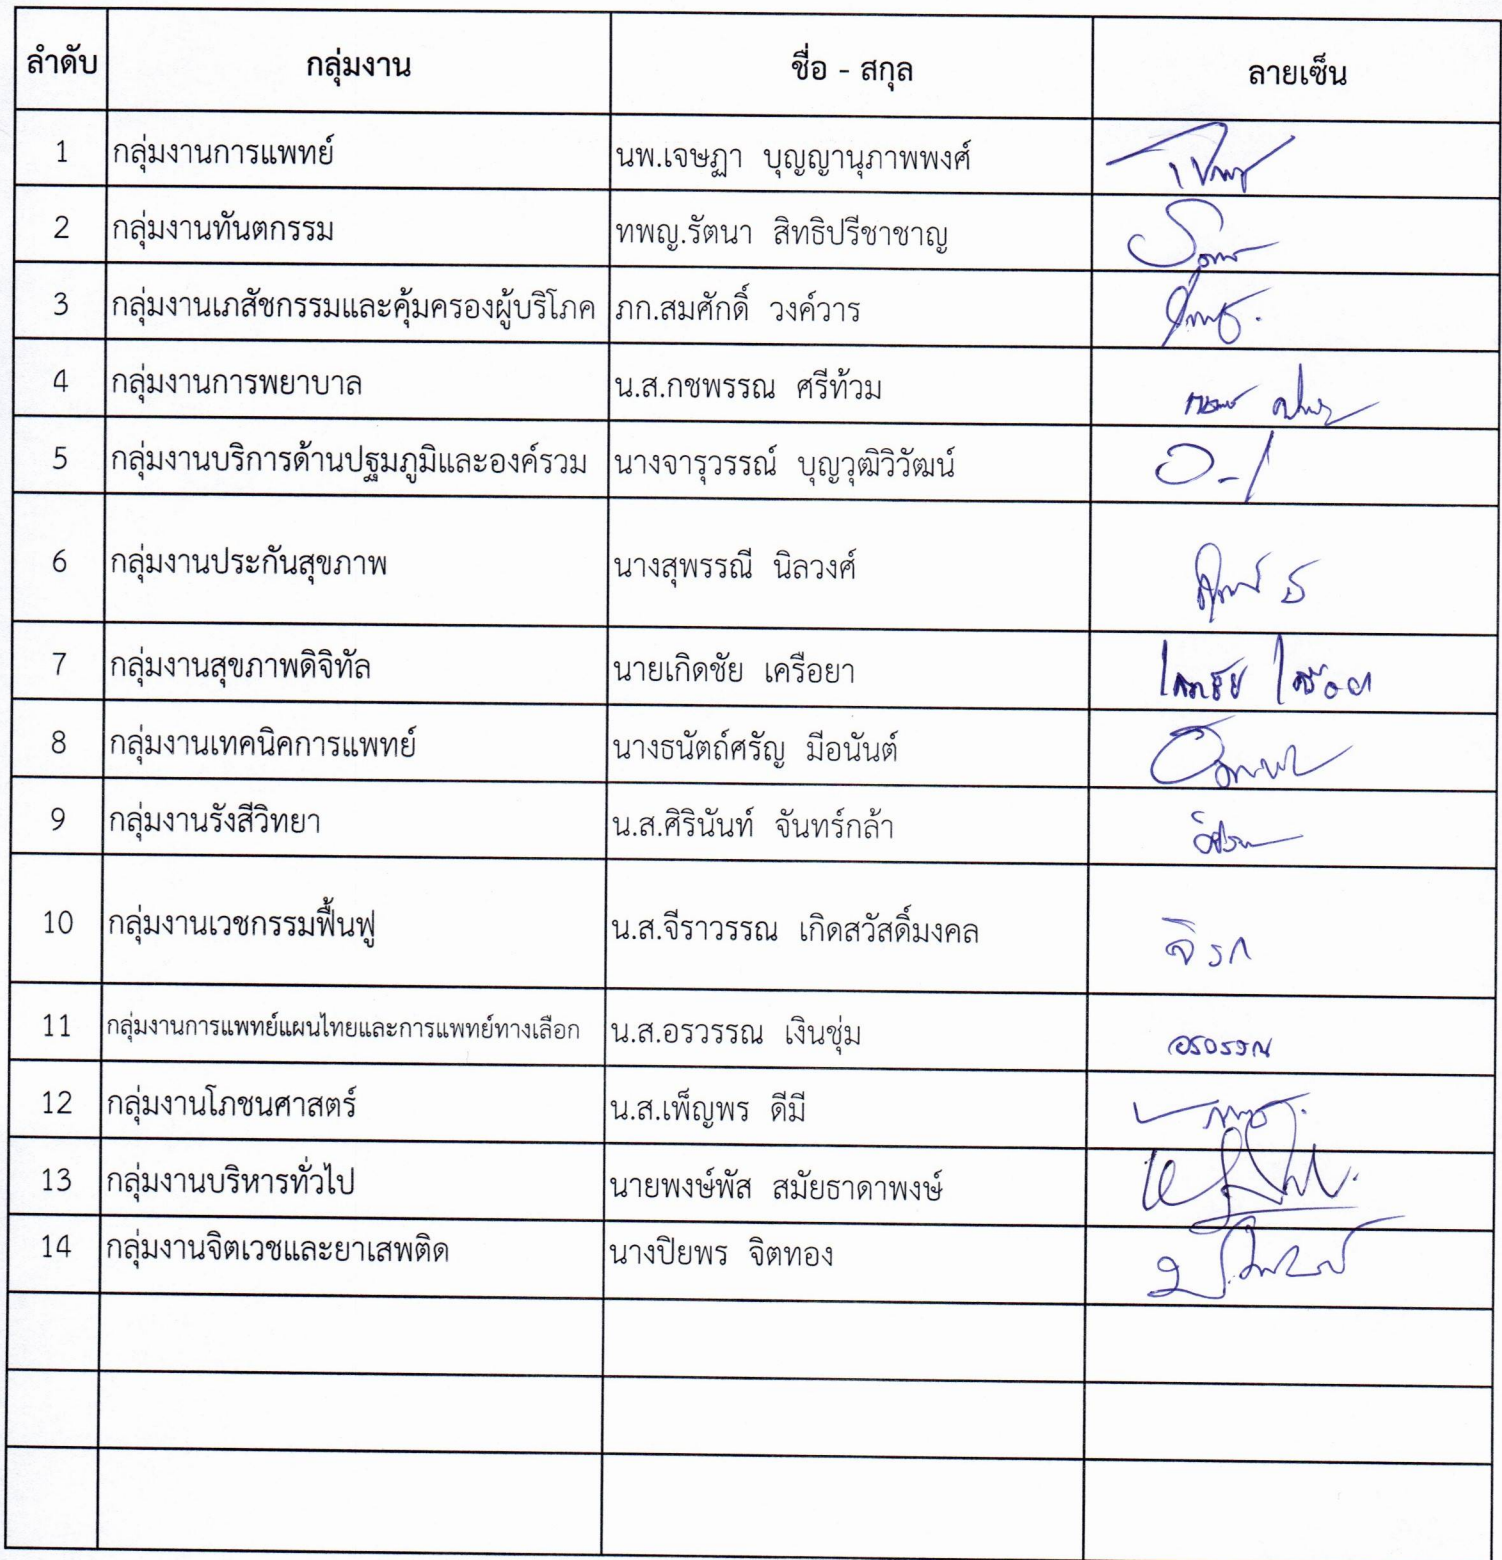 ลำดับ กลุ่มงาน ชื่อ - สกุล ลายเซ็น
1 กลุ่มงานการแพทย์ นพ.เจษฎา บุญญานุภาพพงศ์
2 กลุ่มงานทันตกรรม ทพญ.รัตนา สิทธิปรีชาชาญ
3 กลุ่มงานเภสัชกรรมและคุ้มครองผู้บริโภค ภก.สมศักดิ์ วงค์วาร
4 กลุ่มงานการพยาบาล น.ส.กชพรรณ ศรีท้วม
5 กลุ่มงานบริการด้านปฐมภูมิและองค์รวม นางจารุวรรณ์ บุญวุฒิวิวัฒน์
6 กลุ่มงานประกันสุขภาพ นางสุพรรณี นิลวงศ์
7 กลุ่มงานสุขภาพดิจิทัล นายเกิดชัย เครือยา เกิดชัย เครือยา
8 กลุ่มงานเทคนิคการแพทย์ นางธนัตถ์ศรัญ มีอนันต์
9 กลุ่มงานรังสีวิทยา น.ส.ศิรินันท์ จันทร์กล้า
10 กลุ่มงานเวชกรรมฟื้นฟู น.ส.จีราวรรณ เกิดสวัสดิ์มงคล
11 กลุ่มงานการแพทย์แผนไทยและการแพทย์ทางเลือก น.ส.อรวรรณ เงินชุ่ม อรวรรณ
12 กลุ่มงานโภชนศาสตร์ น.ส.เพ็ญพร ดีมี
13 กลุ่มงานบริหารทั่วไป นายพงษ์พัส สมัยธาดาพงษ์
14 กลุ่มงานจิตเวชและยาเสพติด นางปิยพร จิตทอง